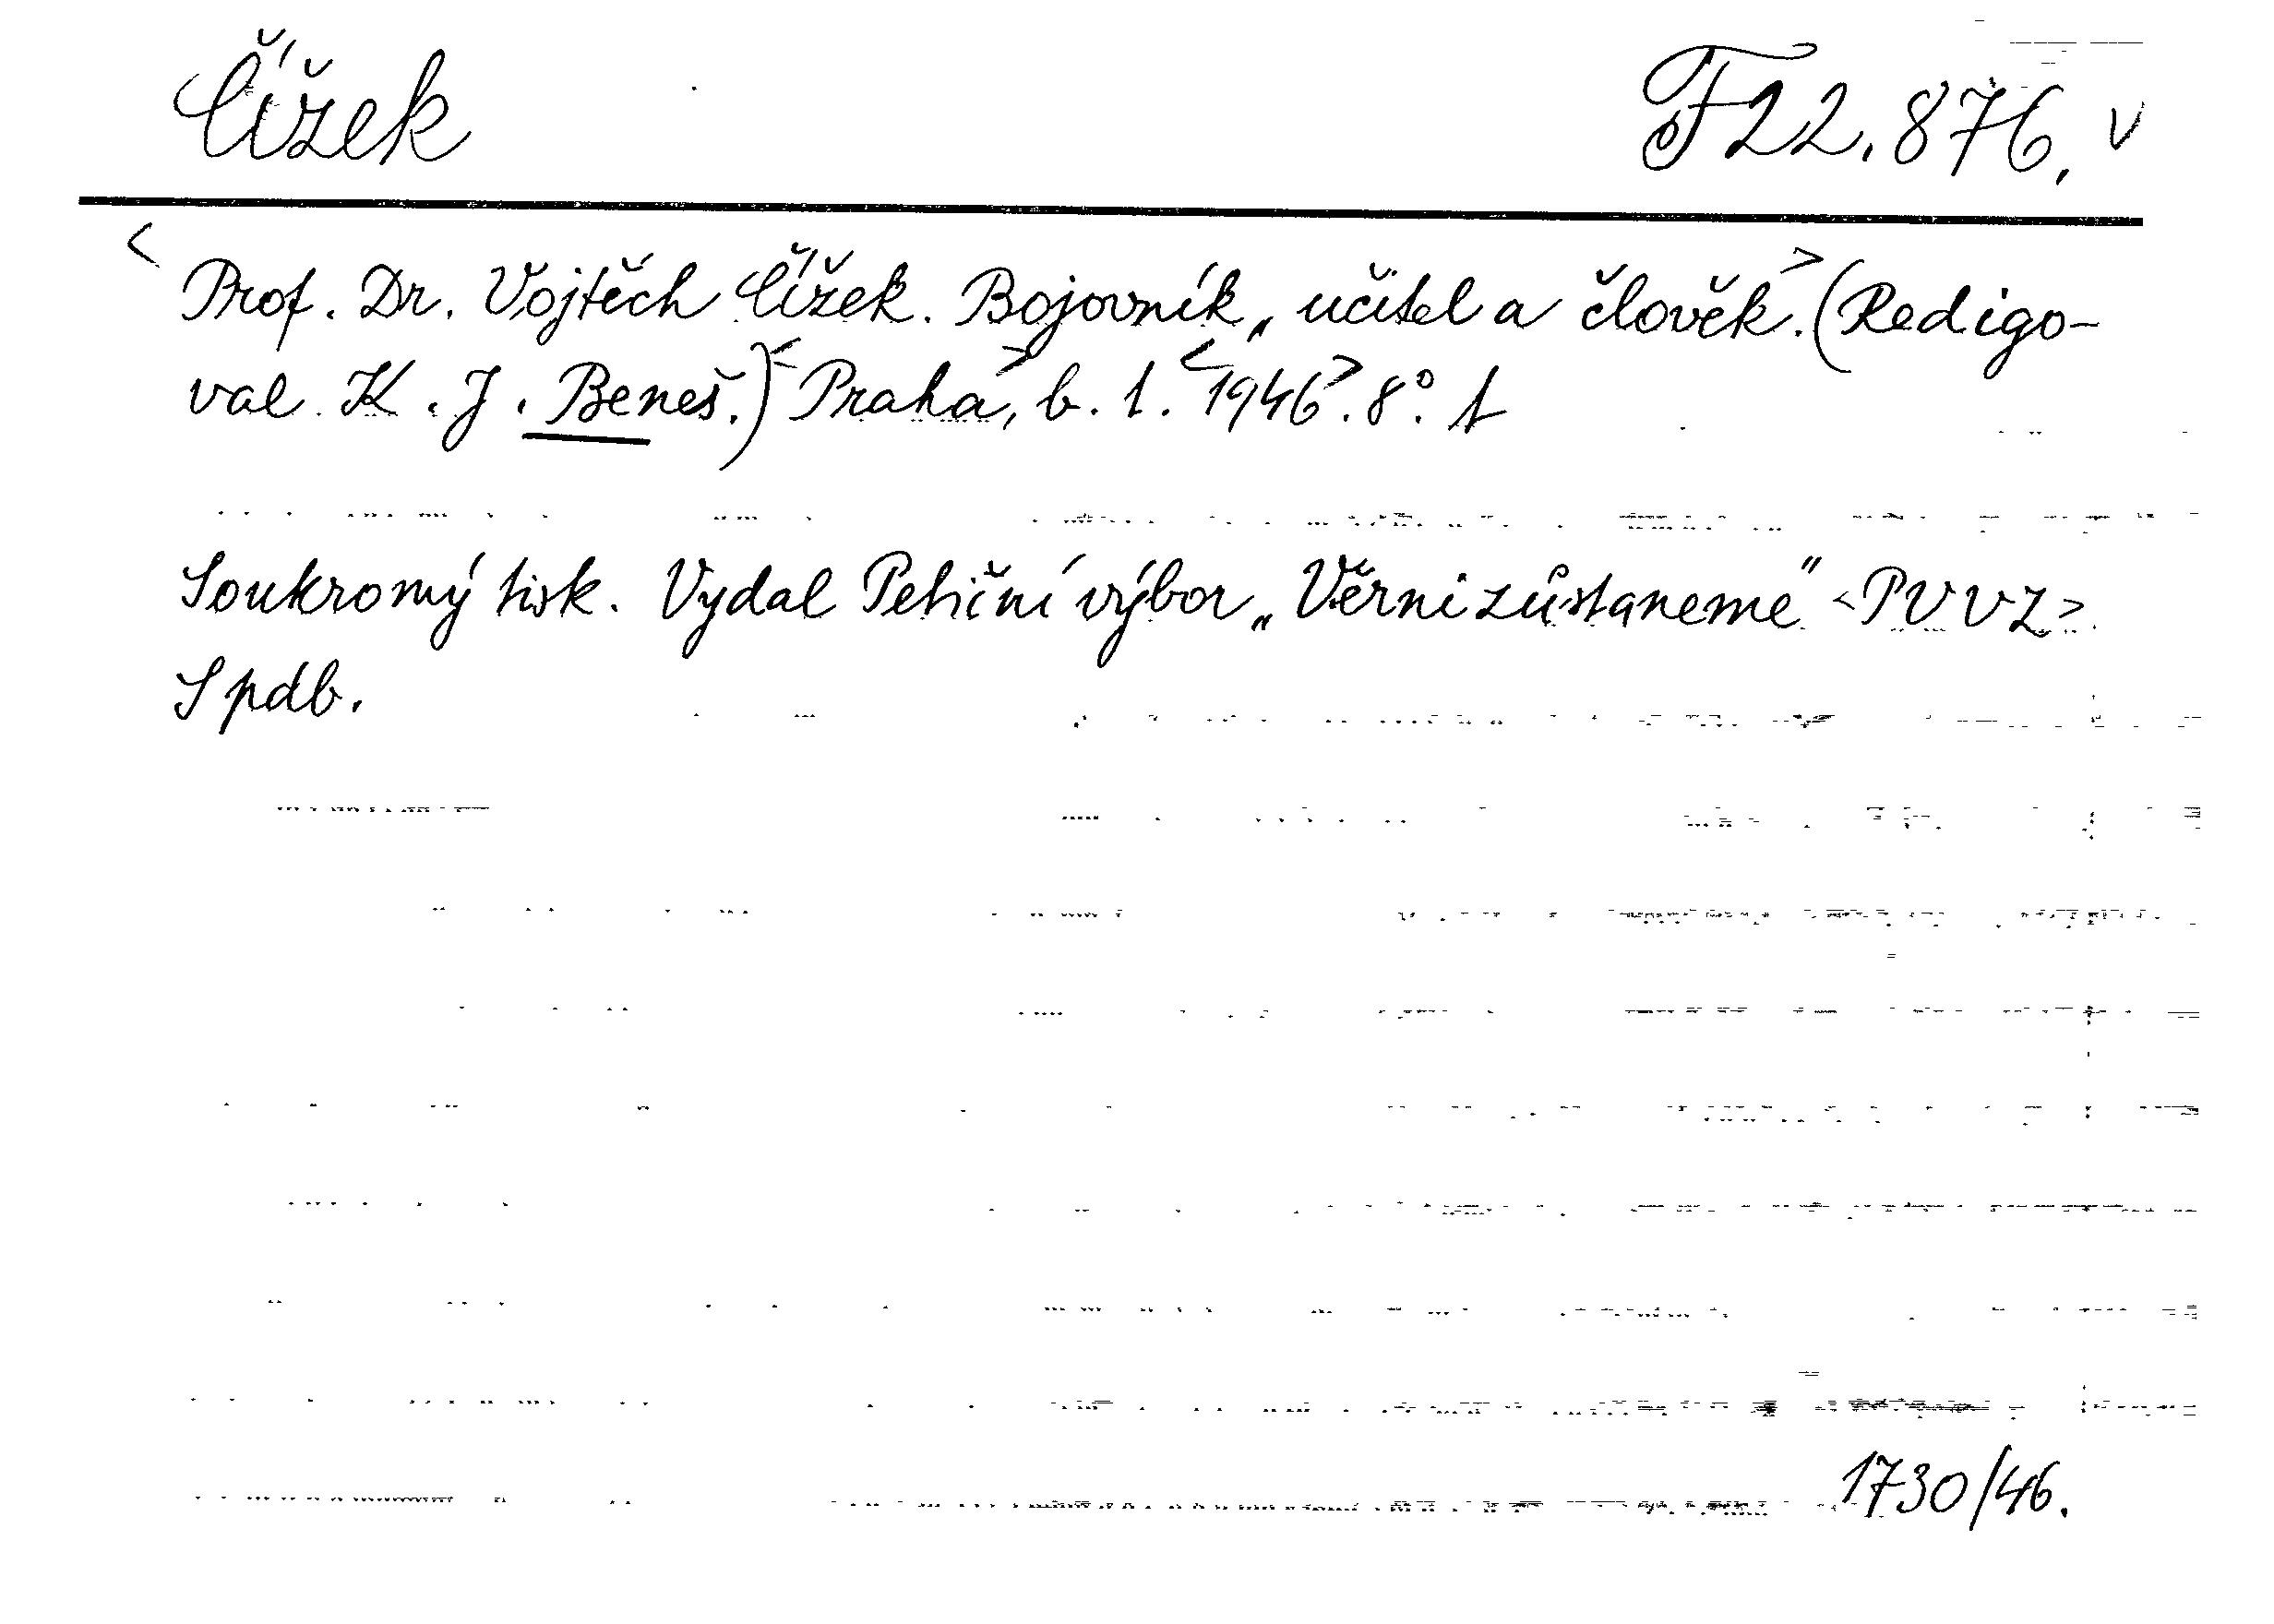 Čížek F22.876. v
<Prof. Dr. Vojtěch Čížek. Bojovník, učitel a člověk.> (Redigo-
val K. J. Beneš.) <Praha>, b. t. <1946>. 8°. t
Soukromý tisk. Vydal Petiční výbor „Věrni zůstaneme" <PVVZ>.
S pdb.
1730/46.